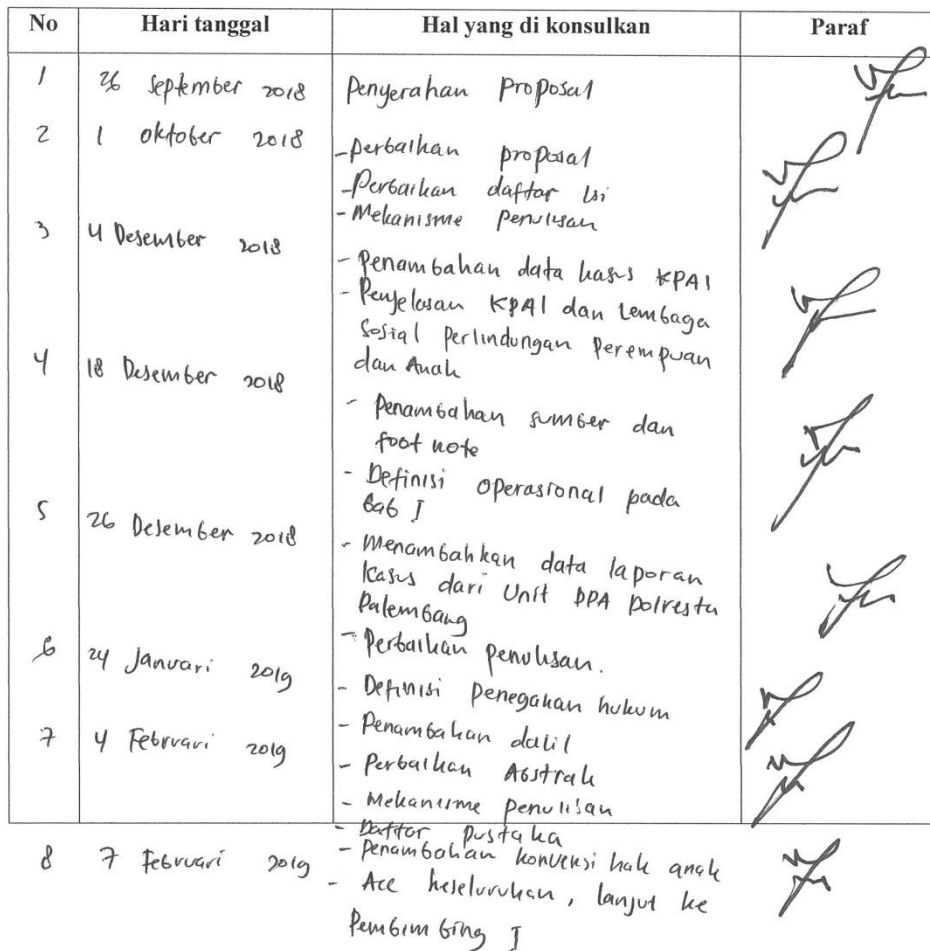 No Hari tanggal Hal yang di konsulkan Paraf
1 26 September 2018 Penyerahan Proposal
2 1 Oktober 2018
- perbaikan proposal
- Perbaikan daftar isi
- Mekanisme penulisan
3 4 Desember 2018
- Penambahan data kasus KPAI
- Penjelasan KPAI dan Lembaga
Sosial Perlindungan Perempuan
dan Anak
4 18 Desember 2018
- Penambahan sumber dan
foot note
- Definisi operasional pada
Bab I
5 26 Desember 2018
- Menambahkan data laporan
kasus dari Unit PPA Polresta
Palembang
- Perbaikan penulisan.
6 24 Januari 2019
- Definisi penegakan hukum
- Penambahan dalil
7 4 Februari 2019
- Perbaikan Abstrak
- Mekanisme penulisan
- Daftar pustaka
8 7 Februari 2019 - Penambahan konvensi hak anak
- Acc keseluruhan, lanjut ke
Pembimbing I